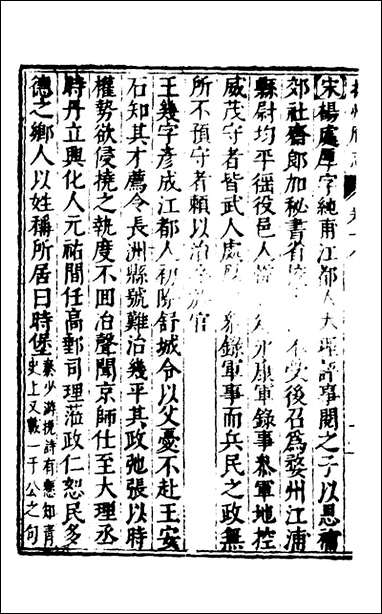 揚州府志 卷十八
宋楊處厚字純甫江都人大理評事閱之子以恩補
郊社齋郎加秘書省 不受後召為婺州江浦
縣尉均平徭役邑人 永康軍錄事叅軍地控
威茂守者皆武人處厚 錄軍事而兵民之政無
所不預守者賴以治 官
王幾字彥成江都人初授舒城令以父憂不赴王安
石知其才薦令長洲縣號難治幾平其政弛張以時
權勢欲侵撓之執度不回治聲聞京師仕至大理丞
時丹立興化人元祐間任高郵司理蒞政仁恕民多
德之鄉人以姓稱所居曰時堡秦少游挽詩有應知青史上又載一于公之句